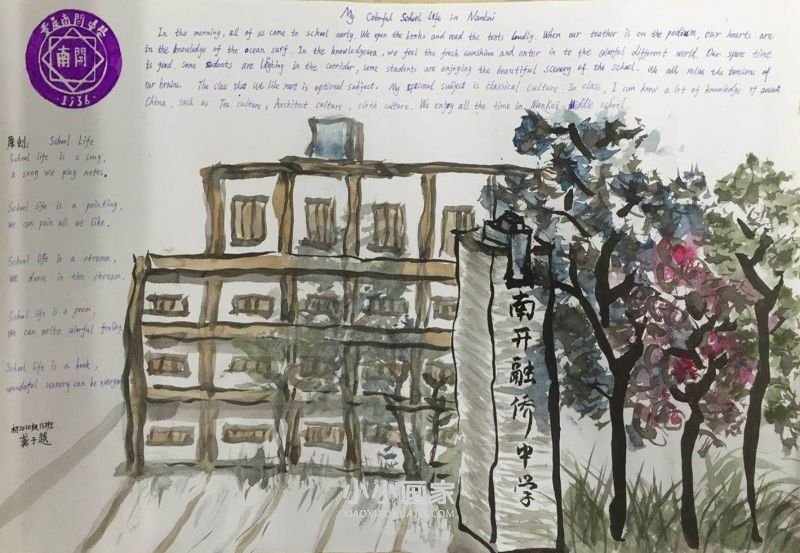 My Colorful School Life in Nankai
In the morning, all of us come to school early. We open the books and read the texts loudly. When our teather is on the podium, our hearts are
in the knowledge of the ocean surf. In the knowledgesea, we feel the fresh sunshine and enter in to the colorful different world. Our spare time
is good. Some students are laghing in the corridor, some students are enjoying the beautiful scenery of the school. We all relax the tensions of
our brains. The class that we like most is optional subject. My optional subject is classical culture. In class, I can know a lot of knowledge of
China, such as Tea culture, Architect culture, cloth culture. We enjoy all the time in NanKai Middle school.
重庆南開中学
南開
·1936·
原创: School Life
School life is a song,
a song we play notes.
School life is a painting,
we can pain all we like.
School life is a stream,
We dance in the stream.
School life is a poem,
We can write colorful feeling.
School life is a book,
wonderful scenery can be
初2020级15班
龚子越
南开融侨中学
小小画家
XIAOXIAOHUAJIA.COM